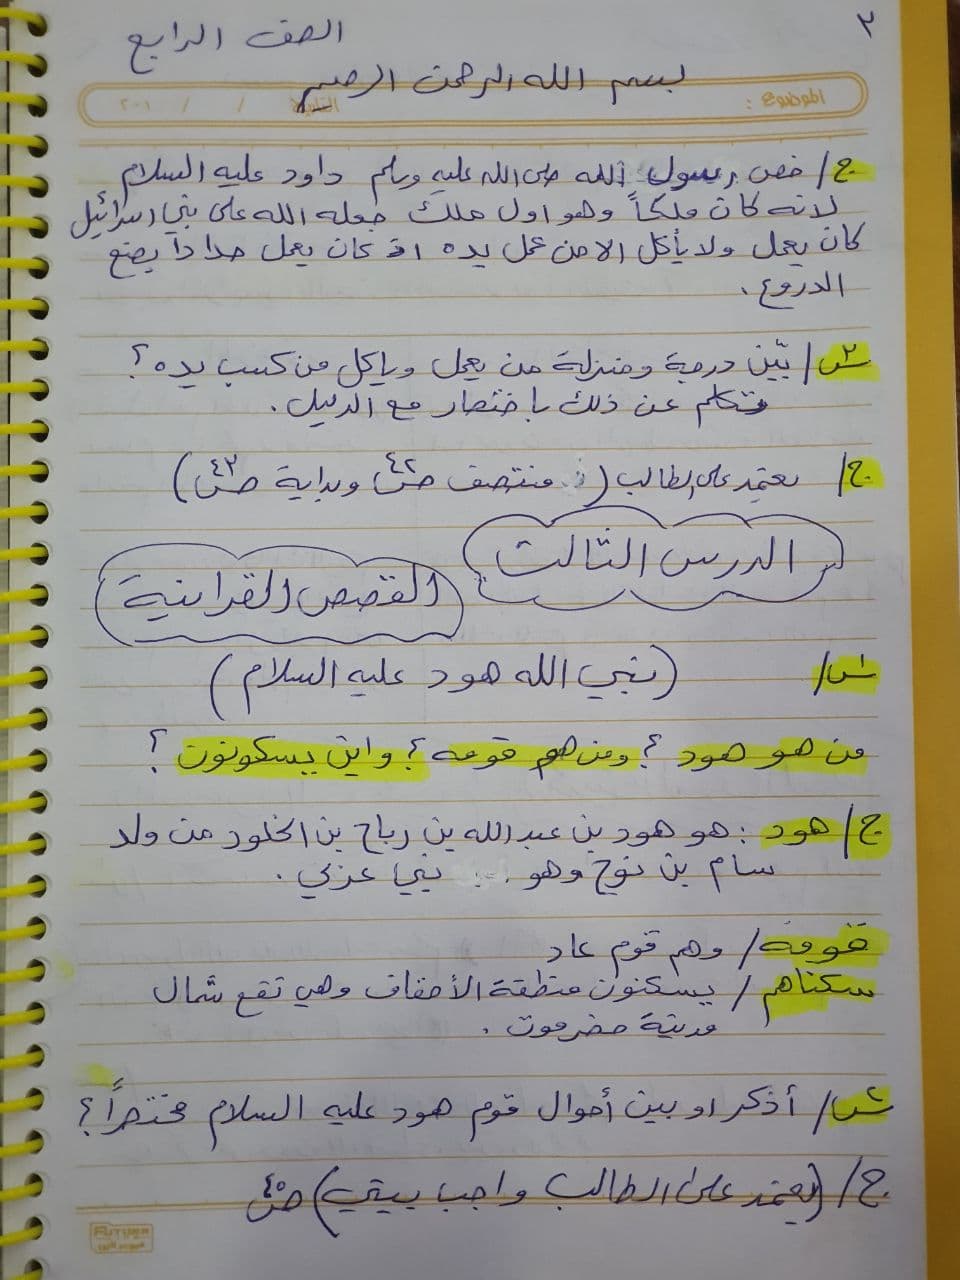 ٢
الصف الرابع
بسم الله الرحمن الرحيم
الموضوع : التاريخ / / ٢٠١
ج/ خص رسول الله صلى الله عليه وسلم داود عليه السلام
لانه كان ملكاً وهو اول ملك جعله الله على بني اسرائيل
كان يعمل ولا يأكل الا من عمل يده اذ كان يعمل حداداً يصنع
الدروع .
س٢/ بيّن درجة ومنزلة من يعمل ويأكل من كسب يده ؟
تكلم عن ذلك بأختصار مع الدليل .
ج/ يعتمد على الطالب ( منتصف ص٤٢ وبداية ص٤٣ )
الدرس الثالث
القصص القرانية
س١/ ( نبي الله هود عليه السلام )
من هو هود ؟ ومن هم قومه ؟ واين يسكونون ؟
ج/ هود : هو هود بن عبد الله بن رباح بن الخلود من ولد
سام بن نوح وهو نبي عربي .
قومه / وهم قوم عاد
سكناهم / يسكنون منطقة الأحقاف وهي تقع شمال
مدينة حضرموت .
س٢/ أذكر او بين أحوال قوم هود عليه السلام مختصراً ؟
ج/ ( يعتمد على الطالب واجب بيتي ) ص٤٥
FUTURE